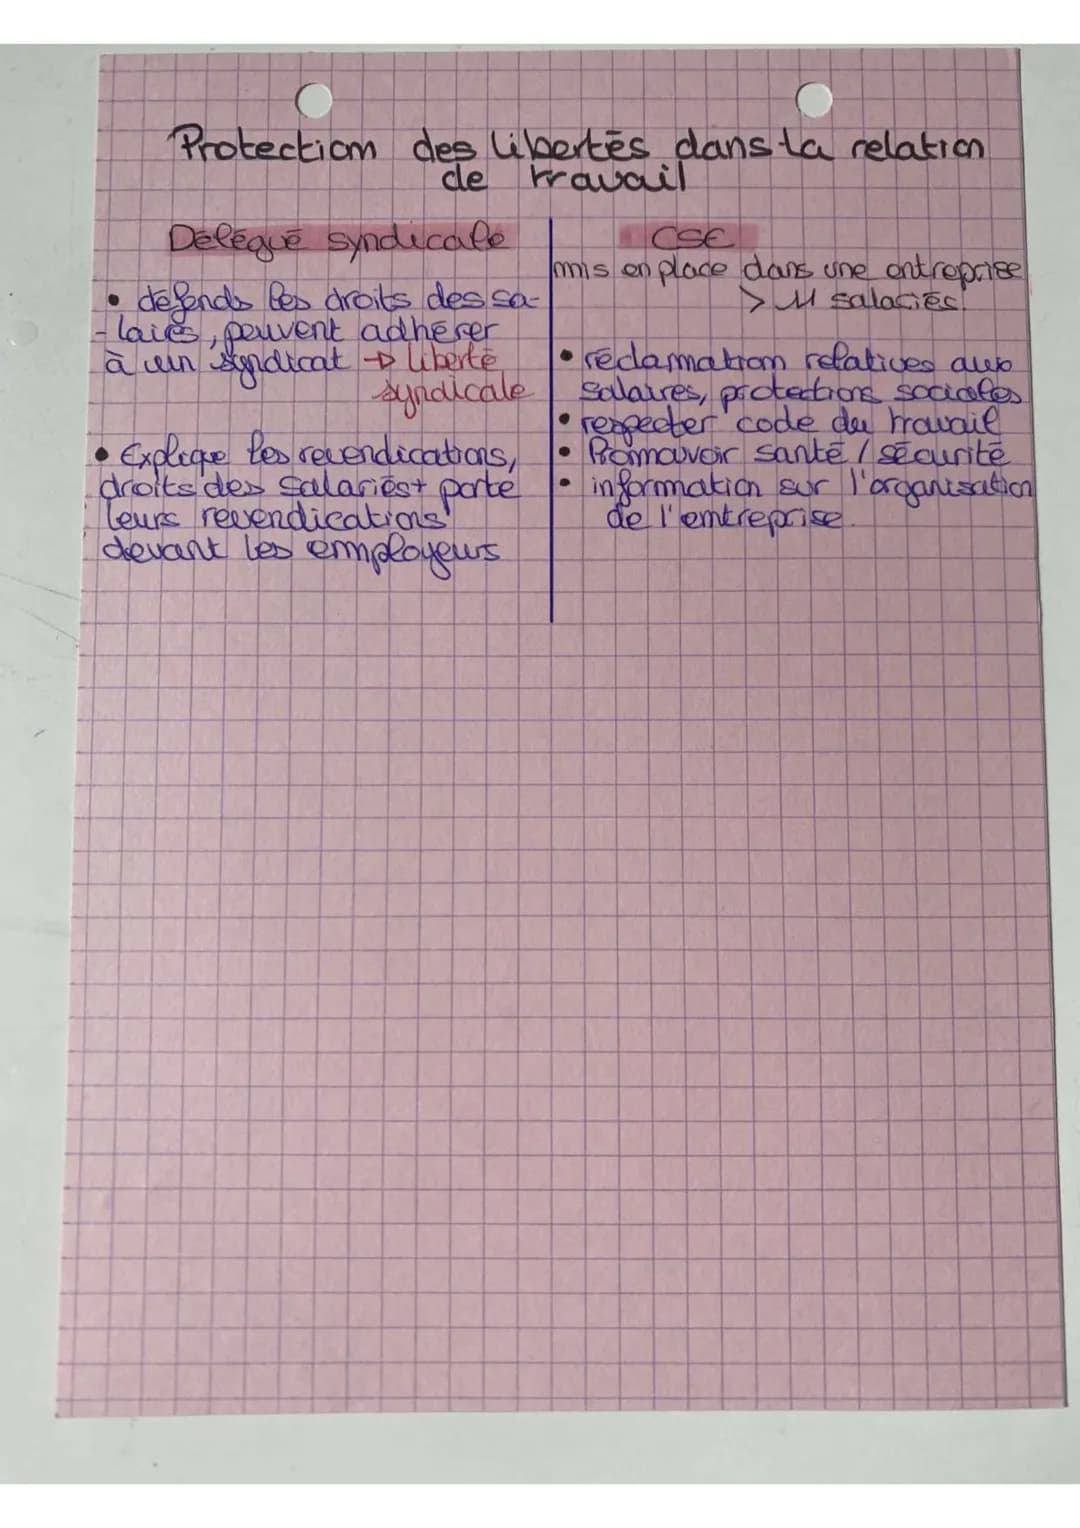 Protection des libertés dans la relation
de travail
Délégué syndicale
• défends les droits des sa-
-lairés, peuvent adhérer
à un syndicat → liberté
syndicale
• Explique les revendications,
droits des salariés + porte
leurs revendications
devant les employeurs
CSE
mis en place dans une entreprise
> 11 salariés.
• réclamation relatives aux
salaires, protections sociales
• respecter code du travail
• Promouvoir santé / sécurité
• information sur l'organisation
de l'entreprise.